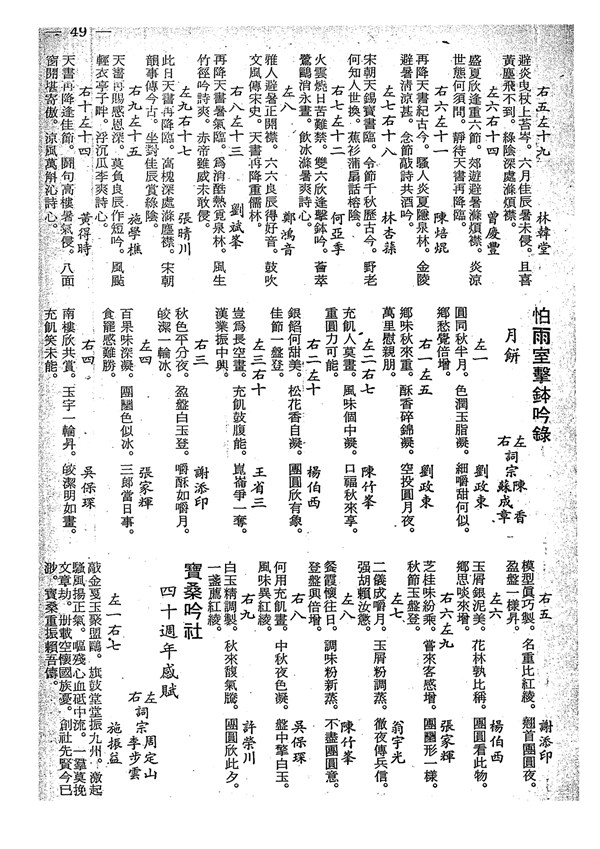 — 49 —
右五左十九　林韓堂
避炎曳杖上苔岑。六月佳辰暑未侵。且喜
黃塵飛不到。綠陰深處滌煩襟。
左六右十四　曾慶豐
盛夏欣逢重六節。郊遊避暑滌煩襟。炎涼
世態何須問。靜待天書再降臨。
右六左十一　陳培焜
再降天書紀古今。騷人炎夏隱泉林。金陵
避暑清涼甚。念節敲詩共酒吟。
左七右十八　林杏蓀
宋朝天錫寶書臨。令節千秋歷古今。野老
何知人世換。蕉衫蒲扇話榕陰。
右七左十二　何亞季
火雲燒日苦難禁。雙六欣逢擊鉢吟。薈萃
鷺鷗消永晝。飲冰滌暑爽詩心。
左八　鄭鴻音
雅人避暑正開襟。六六良辰得好音。鼓吹
文風傳宋史。天書再降重儒林。
右八左十三　劉斌峯
再降天書暑氣臨。爲消酷熱覓泉林。風生
竹徑吟詩爽。赤帝雖威未敢侵。
左九右十七　張晴川
此日天書再降臨。高槐深處滌塵襟。宋朝
韻事傳今古。坐對佳辰賞綠陰。
右九左十五　施學樵
天書再賜感恩深。莫負良辰作短吟。風颭
輕衣亭子畔。浮沉瓜李爽詩心。
右十左十四　黃得時
天書再降逢佳節。鬪句高樓暑氣侵。八面
窗開堪寄傲。涼風萬斛沁詩心。
怕雨室擊鉢吟錄
月餅
左詞宗　陳　香
右詞宗　蘇成章
左一　劉政東
圓同秋半月。色潤玉脂凝。細嚼甜何似。
鄉愁覺倍增。
右一左五　劉政東
鄉味秋來重。酥香碎錦凝。空投圓月夜。
萬里慰親朋。
左二右七　陳竹峯
充飢人莫晝。風味個中凝。口福秋來享。
重圓力可能。
右二左十　楊伯西
銀餡何甜美。松花香自凝。團圓欣有象。
佳節一盤登。
左三右十　王省三
豈爲長空畫。充飢鼓腹能。崑崙爭一奪。
漢業振中興。
右三　謝添印
秋色平分夜。盈盤白玉登。嚼酥如嚼月。
皎潔一輪冰。
左四　張家輝
百果味深凝。團圞色似冰。三郎當日事。
食罷感難勝。
右四　吳保琛
南樓欣共賞。玉宇一輪昇。皎潔明如晝。
充飢笑未能。
右五　謝添印
模型眞巧製。名重比紅綾。翹首團圓夜。
盈盤一樣昇。
左六　楊伯西
玉屑銀泥美。花林孰比稱。團圓看此物。
鄉思啖來增。
右六左九　張家輝
芝桂味紛乘。嘗來客感增。團圞形一樣。
秋節玉盤登。
左七　翁宇光
二儀成嚼月。玉屑粉調蒸。徹夜傳兵信。
强胡賴汝懲。
左八　陳竹峯
餐霞懷往日。調味粉新蒸。不盡團圓意。
登盤興倍增。
右八　吳保琛
何用充飢畫。中秋夜色凝。盤中擎白玉。
風味異紅綾。
右九　許榮川
白玉精調製。秋來馥氣騰。團圓欣此夕。
一盞薦紅綾。
寶桑吟社
四十週年感賦
左詞宗　周定山
右詞宗　李步雲
左一右七　施振益
敲金戛玉聚盟鷗。旗鼓堂堂振九州。激起
騷風揚正氣。嘔殘心血砥中流。一羣莫挽
文章劫。卌載空懷國族憂。創社先賢今已
渺。寶桑重振賴吾儔。